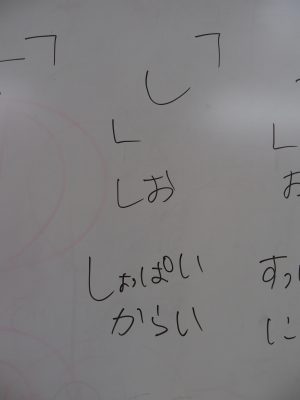 「
し
」
しお
しょっぱい
からい
お
すっ
に